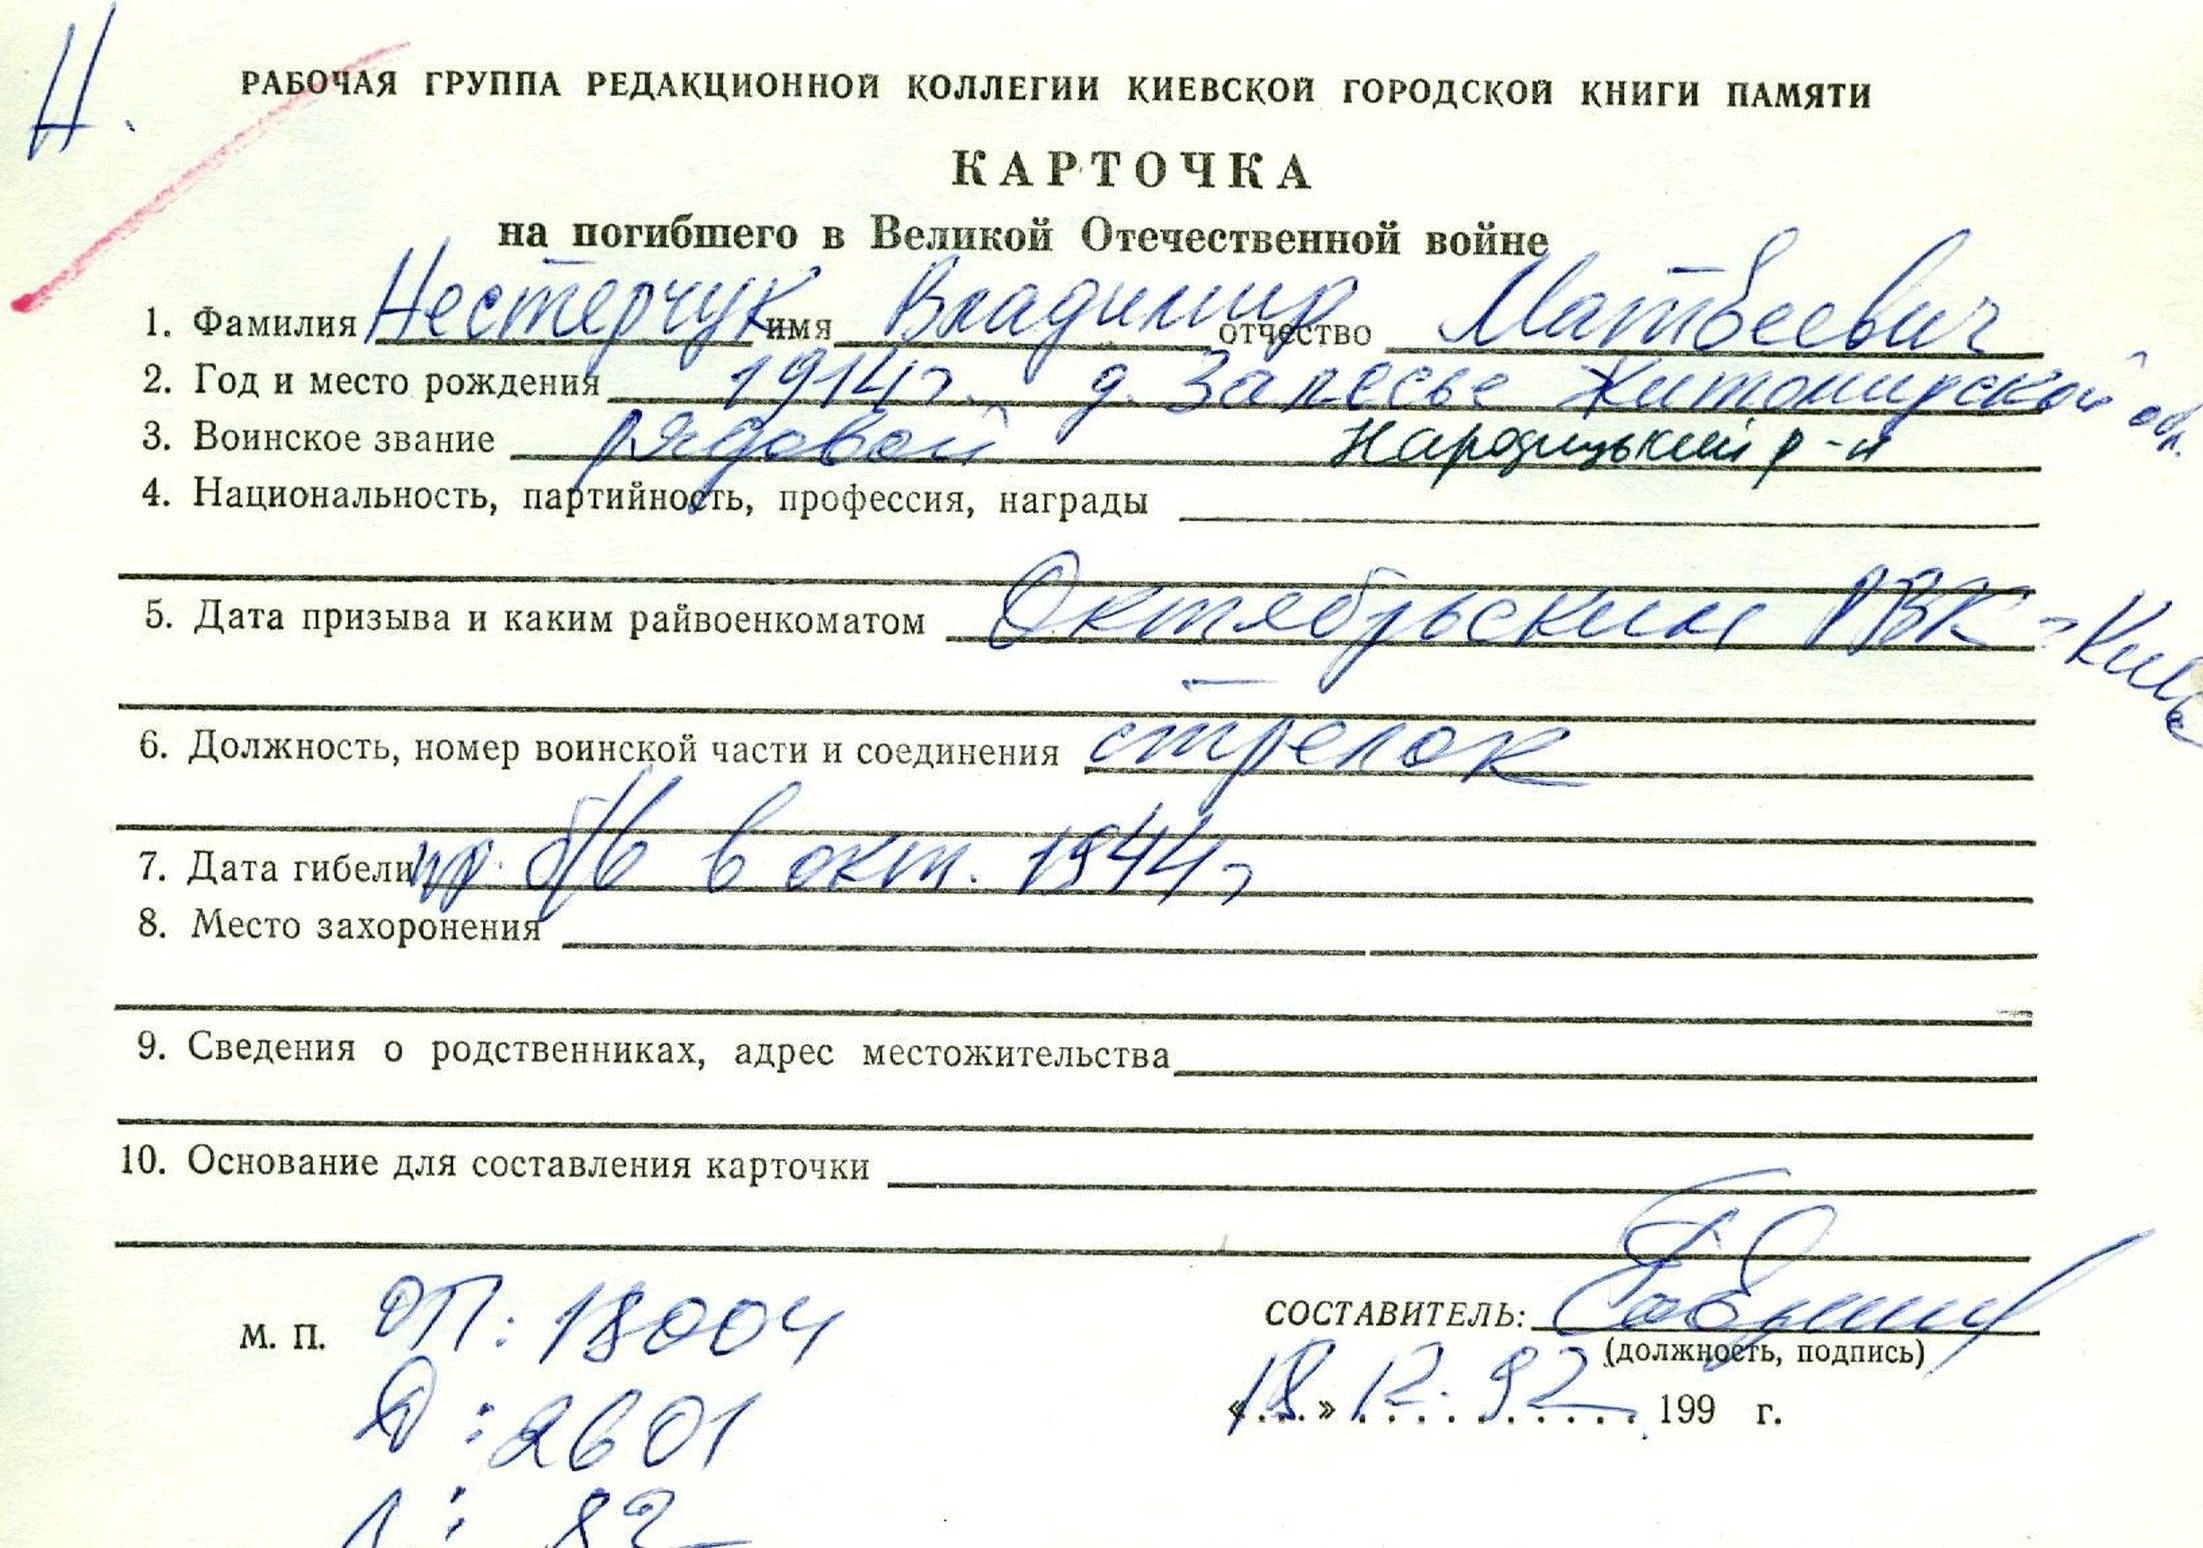 Н.
РАБОЧАЯ ГРУППА РЕДАКЦИОННОЙ КОЛЛЕГИИ КИЕВСКОЙ ГОРОДСКОЙ КНИГИ ПАМЯТИ
КАРТОЧКА
на погибшего в Великой Отечественной войне
1. Фамилия Нестерчук имя Владимир отчество Матвеевич
2. Год и место рождения 1914г. д. Залесье Житомирской обл.
3. Воинское звание рядовой Народицький р-н
4. Национальность, партийность, профессия, награды
5. Дата призыва и каким райвоенкоматом Октябрьским РВК г. Киева
6. Должность, номер воинской части и соединения стрелок
7. Дата гибели пр. б/в в окт. 1944г
8. Место захоронения
9. Сведения о родственниках, адрес местожительства
10. Основание для составления карточки
М. П. ОП: 18004
СОСТАВИТЕЛЬ:
(должность, подпись)
Д: 2601
«18» 12. 92 199 г.
Л: 82